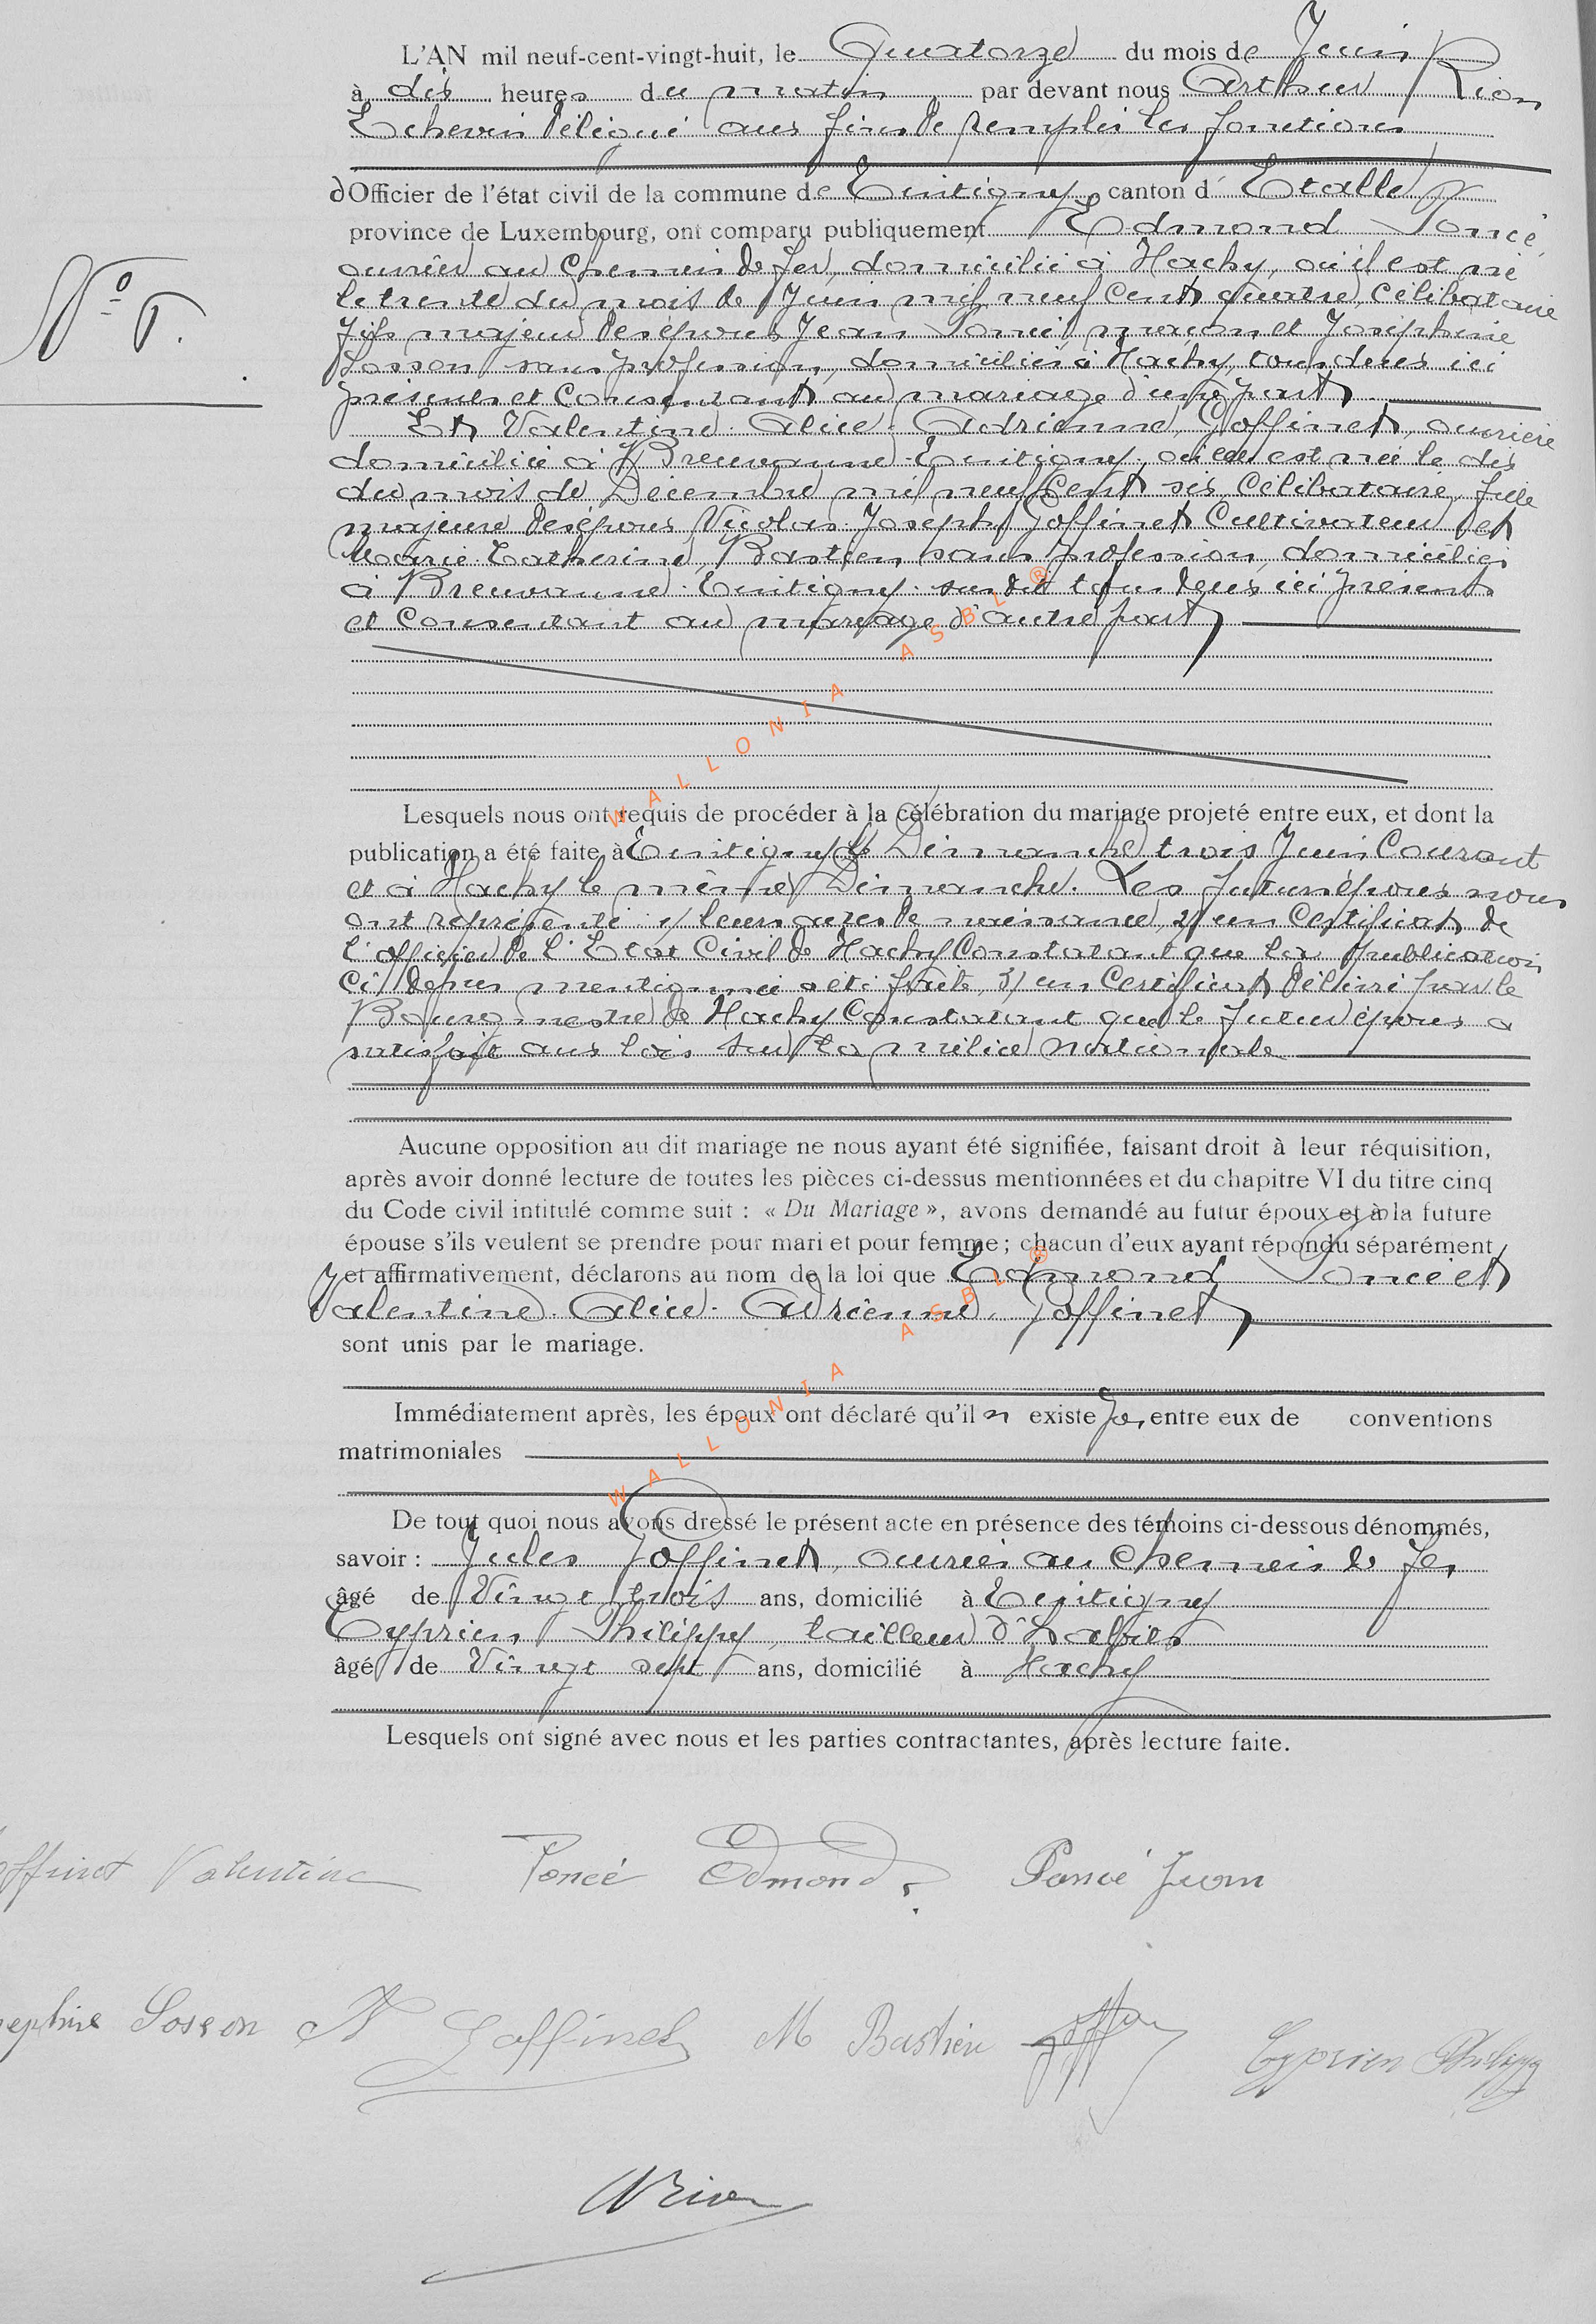 L'AN mil neuf-cent-vingt-huit, le Quatorze du mois de Juin
à dix heures du matin par devant nous Arthur Rion
Echevin délégué aux fins de remplir les fonctions
d'Officier de l'état civil de la commune de Tintigny canton d' Etalle
province de Luxembourg, ont comparu publiquement Edmond Poncé,
ouvrier au Chemin de fer, domicilié à Hachy, où il est né
le trente du mois de Juin mil neuf Cent quatre, Célibataire
fils majeur des époux Jean Poncé, maçon et Joséphine
Sosson sans profession, domiciliés à Hachy, tous deux ici
présents et Consentant au mariage d'une part
Nº 5.
Et Valentine-Alice-Adrienne, Goffinet, ouvrière
domiciliée à Breuvanne-Tintigny, où elle est née le dix
du mois de Décembre mil neuf Cent six, Célibataire, fille
majeure des époux Nicolas-Joseph Goffinet Cultivateur et
Marie-Catherine, Bastien, sans profession, domiciliés
à Breuvanne-Tintigny susdit tous deux ici présents
et Consentant au mariage d'autre part
Lesquels nous ont requis de procéder à la célébration du mariage projeté entre eux, et dont la
publication a été faite à Tintigny le Dimanche trois Juin Courant
et à Hachy le même Dimanche. Les futurs époux nous
ont représenté 1/ leurs actes de naissance, 2/ un Certificat de
l'officier de l'Etat Civil de Hachy Constatant que la publication
Ci dessus mentionnée a été faite, 3/ un Certificat délivré par le
Bourgmestre de Hachy Constatant que le futur époux a
satisfait aux lois sur la milice nationale
Aucune opposition au dit mariage ne nous ayant été signifiée, faisant droit à leur réquisition,
après avoir donné lecture de toutes les pièces ci-dessus mentionnées et du chapitre VI du titre cinq
du Code civil intitulé comme suit : « Du Mariage », avons demandé au futur époux et à la future
épouse s'ils veulent se prendre pour mari et pour femme ; chacun d'eux ayant répondu séparément
et affirmativement, déclarons au nom de la loi que Edmond Poncé et
Valentine-Alice-Adrienne, Goffinet
sont unis par le mariage.
Immédiatement après, les époux ont déclaré qu'il n existe pas entre eux de conventions
matrimoniales
De tout quoi nous avons dressé le présent acte en présence des témoins ci-dessous dénommés,
savoir : Jules Goffinet, ouvrier au Chemin de fer
âgé de Vingt trois ans, domicilié à Tintigny
Cyprien Philippy, tailleur d'habits
âgé de Vingt sept ans, domicilié à Hachy
Lesquels ont signé avec nous et les parties contractantes, après lecture faite.
offinet Valentine Poncé Edmond. Poncé Jean
sephine Sosson N Goffinet M Bastien Cyprien Philippy
ARion
WALLONIA ASBL ®
WALLONIA ASBL ®